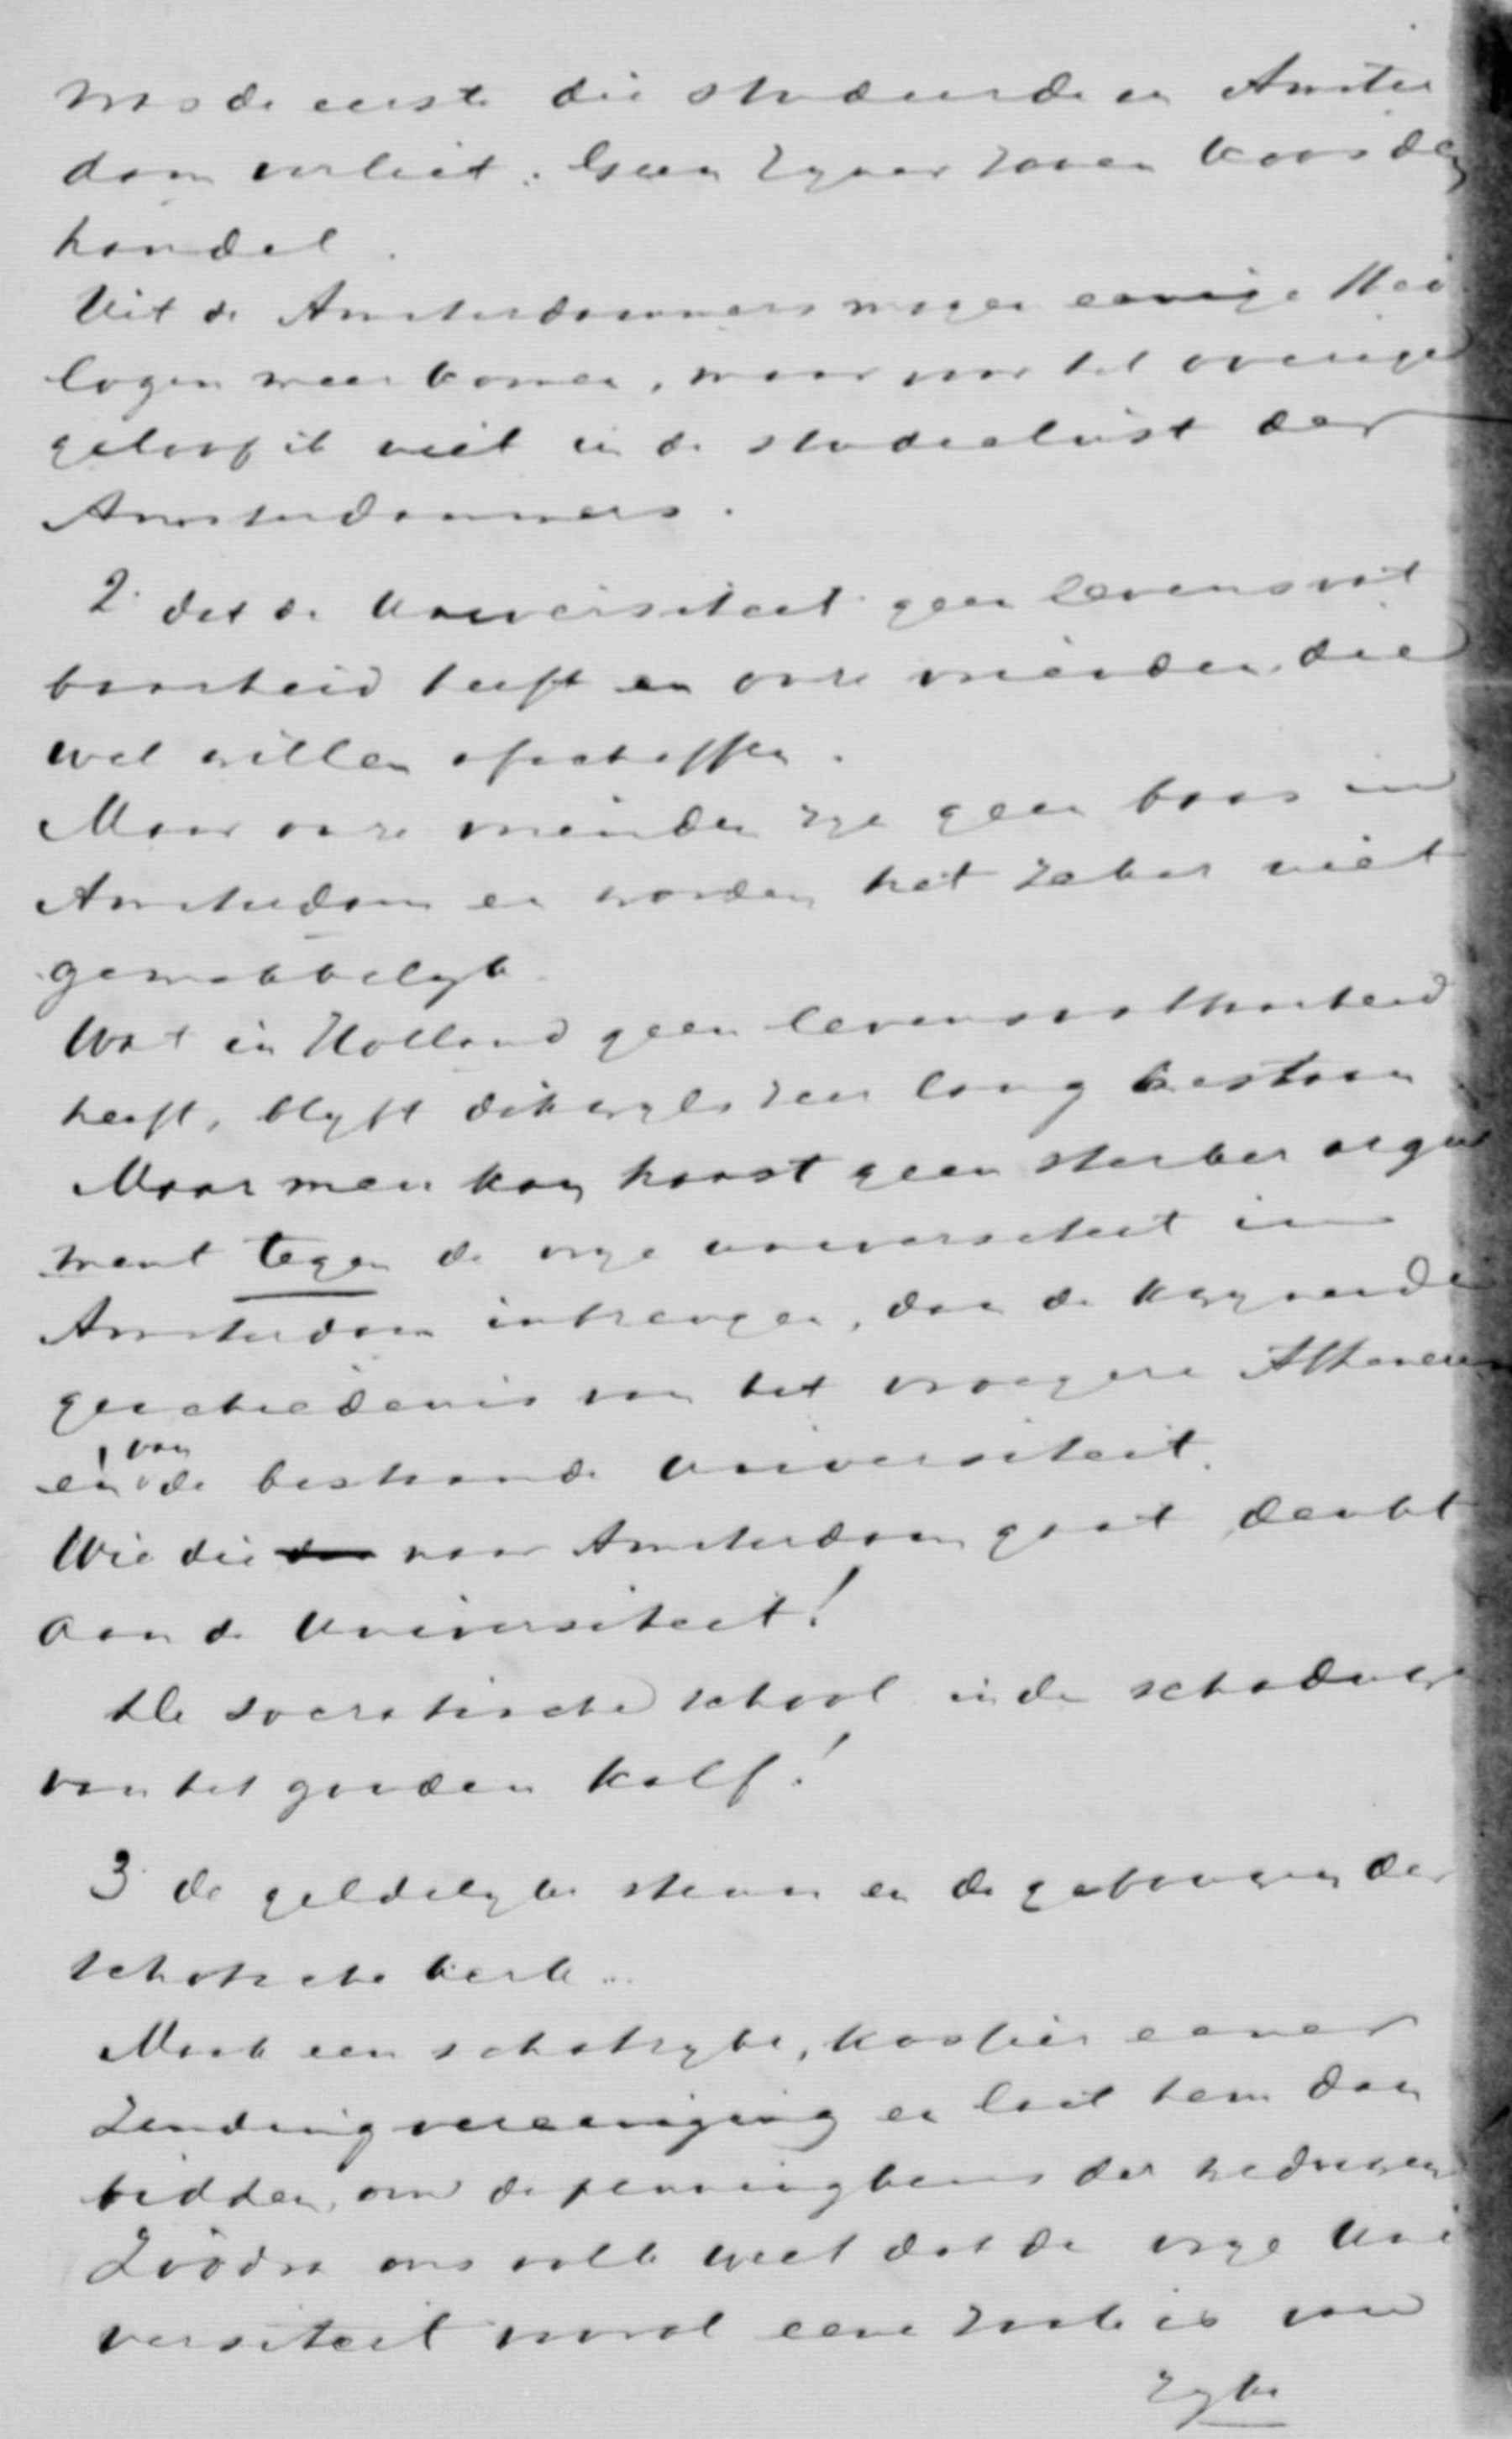 was de eerste die studeerde en Amster
dam verliet. Geen zyner zonen koos den
handel.
Uit de Amsterdammers mogen eenige theo
logen meer komen, maar voor het overige
geloof ik niet in de studielust der
Amsterdammers.
2. dat de Universiteit geen levensvat
baarheid heeft en onze vrienden die
wel willen afschaffen.
Maar onze vrienden zyn geen baas in
Amsterdam en worden het zeker niet
gemakkelyk.
Wat in Holland geen levensvatbaarheid
heeft, blyft dikwyls zeer lang bestaan.
Maar men kan haast geen sterker argu
ment tegen de vrye universiteit in
Amsterdam inbrengen, dan de
geschiedenis van het vroegere Atheneum
en van de bestaande Universiteit.
Wie die naar Amsterdam gaat denkt
aan de Universiteit!
De socratische school in de schaduw
van het gouden kalf!
3. de geldelyke steun en de gebouwen der
schotsche kerk...
Maak een schatryke, kassier eener
Zendingvereeniging en laat hem dan
bidden om de penningkens der weduwen
Zoodra ons volk weet dat de vrye Uni
versiteit vooral eene zaak is van
ryke